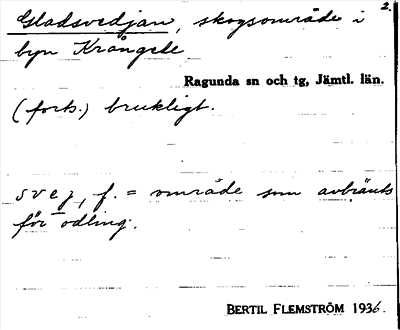 2.
Gladsvedjan, skogsområde i
byn Krångede
Ragunda sn och tg, Jämtl. län.
(forts.) brukligt.
svej, f. = område som avbränts
för odling.
BERTIL FLEMSTRÖM 1936.